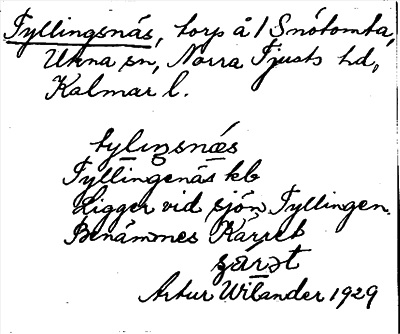 Tyllingsnäs, torp å 1 Snötomta,
Ukna sn, Norra Tjusts hd,
Kalmar l.
tylingsnæs
Tyllingenäs kb
Ligger vid sjön Tyllingen.
Benämnes Kärret
Artur Wilander 1929